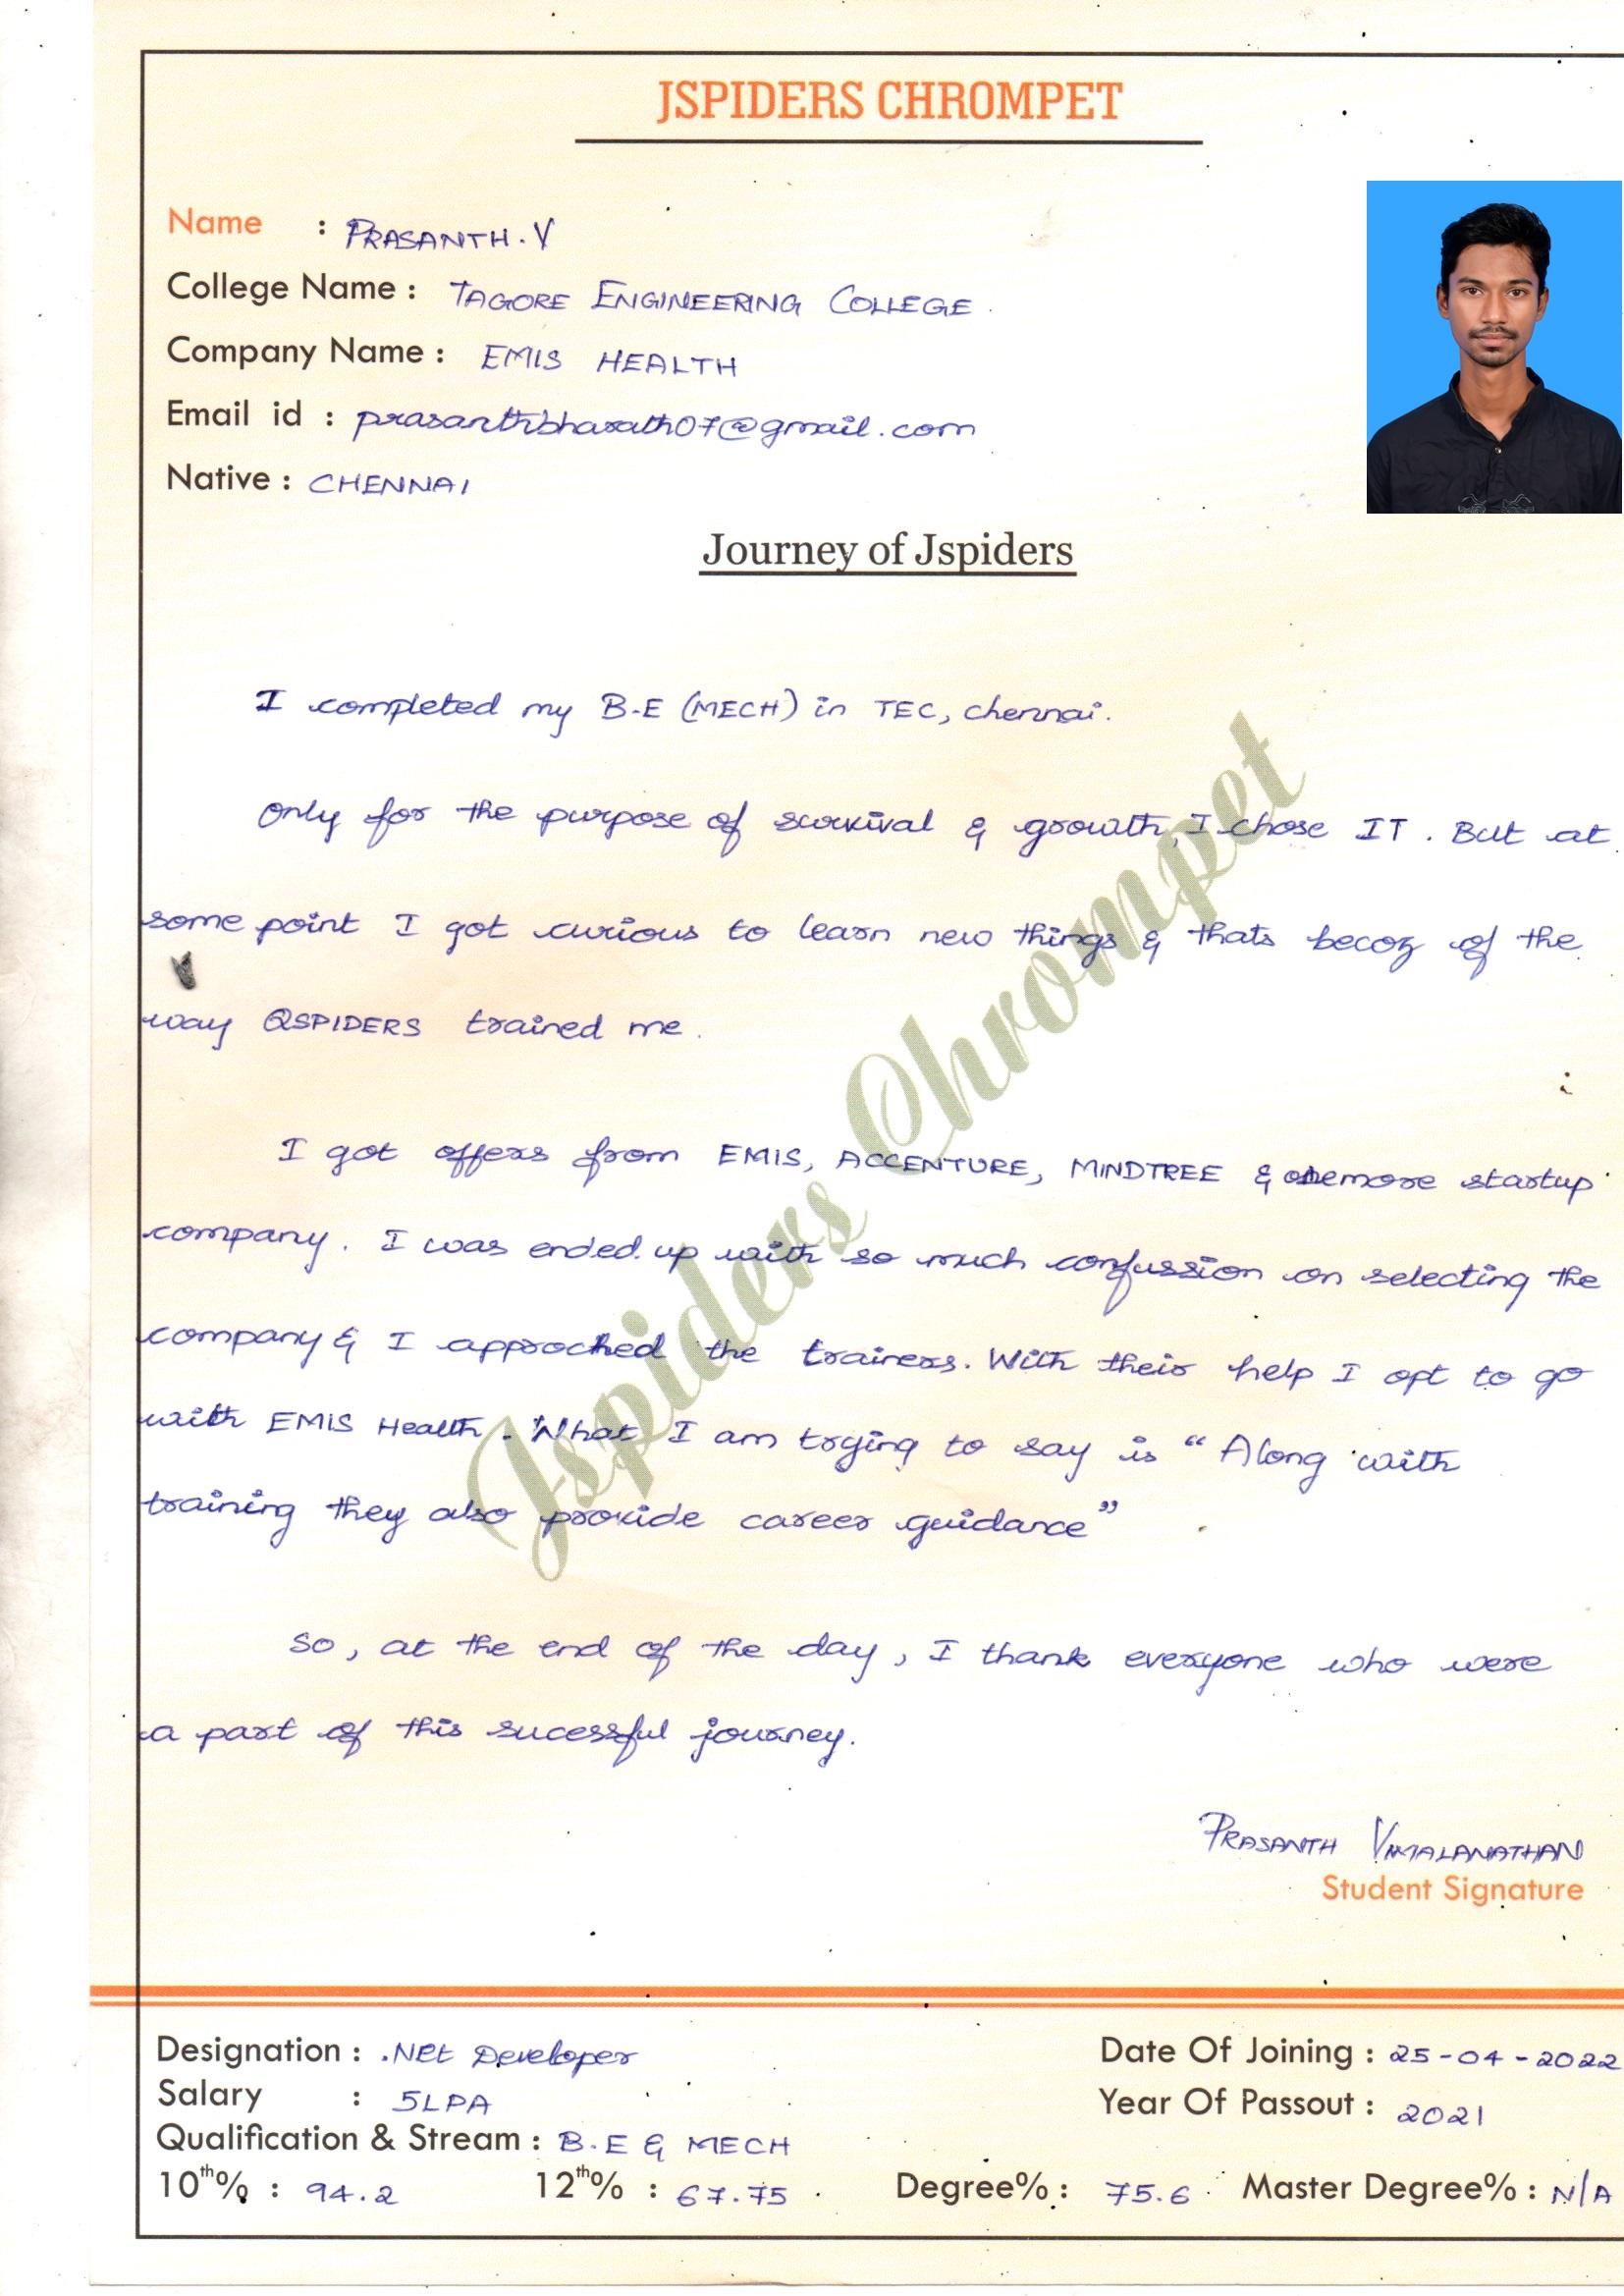 JSPIDERS CHROMPET
Name : PRASANTH. V
College Name : TAGORE ENGINEERING COLLEGE.
Company Name : EMIS HEALTH
Email id : prasanthbharath07@gmail.com
Native : CHENNAI
Journey of Jspiders
I completed my B.E (MECH) in TEC, Chennai.
Only for the purpose of survival & growth, I chose IT. But at
some point I got curious to learn new things & thats becoz of the
way QSPIDERS trained me.
I got offers from EMIS, ACCENTURE, MINDTREE & onemore startup
company. I was ended up with so much confussion on selecting the
company & I approched the trainers. With their help I opt to go
with EMIS Health. What I am trying to say is “Along with
training they also provide career guidance”
So, at the end of the day, I thank everyone who were
a part of this sucessful journey.
Jspiders Chrompet
PRASANTH VIMALANATHAN
Student Signature
Designation : .Net Developer
Date Of Joining : 25-04-2022
Salary : 5LPA
Year Of Passout : 2021
Qualification & Stream : B.E & MECH
10th% : 94.2 12th% : 67.75 . Degree% : 75.6 Master Degree% : N/A